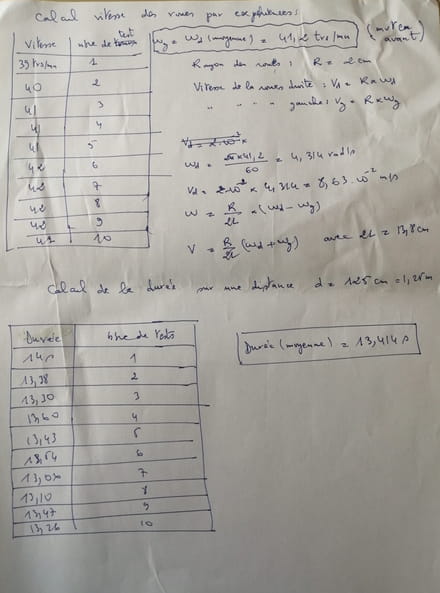 Calcul vitesse des roues par expériences :
Vitesse | nbre de test
39 trs/mn | 1
40 | 2
41 | 3
41 | 4
41 | 5
42 | 6
42 | 7
42 | 8
42 | 9
41 | 10
ωg = ωd (moyenne) = 41,2 trs/mn (mvt en avant)
Rayon des roues : R = 2 cm
Vitesse de la roues droite : Vd = R×ωd
" " " " gauche : Vg = R×ωg
Vd = 2·10⁻² ×
ωd = 2π×41,2 / 60 = 4,314 rad/s
Vd = 2·10⁻² × 4,314 = 8,63·10⁻² m/s
ω = R/2L × (ωd - ωg)
V = R/2 (ωd + ωg) avec 2L = 13,8 cm
Calcul de la durée sur une distance d = 125 cm = 1,25 m
Durée | nbre de tests
14 s | 1
13,38 | 2
13,30 | 3
13,60 | 4
13,43 | 5
13,54 | 6
7
13,10 | 8
13,47 | 9
13,26 | 10
Durée (moyenne) = 13,414 s